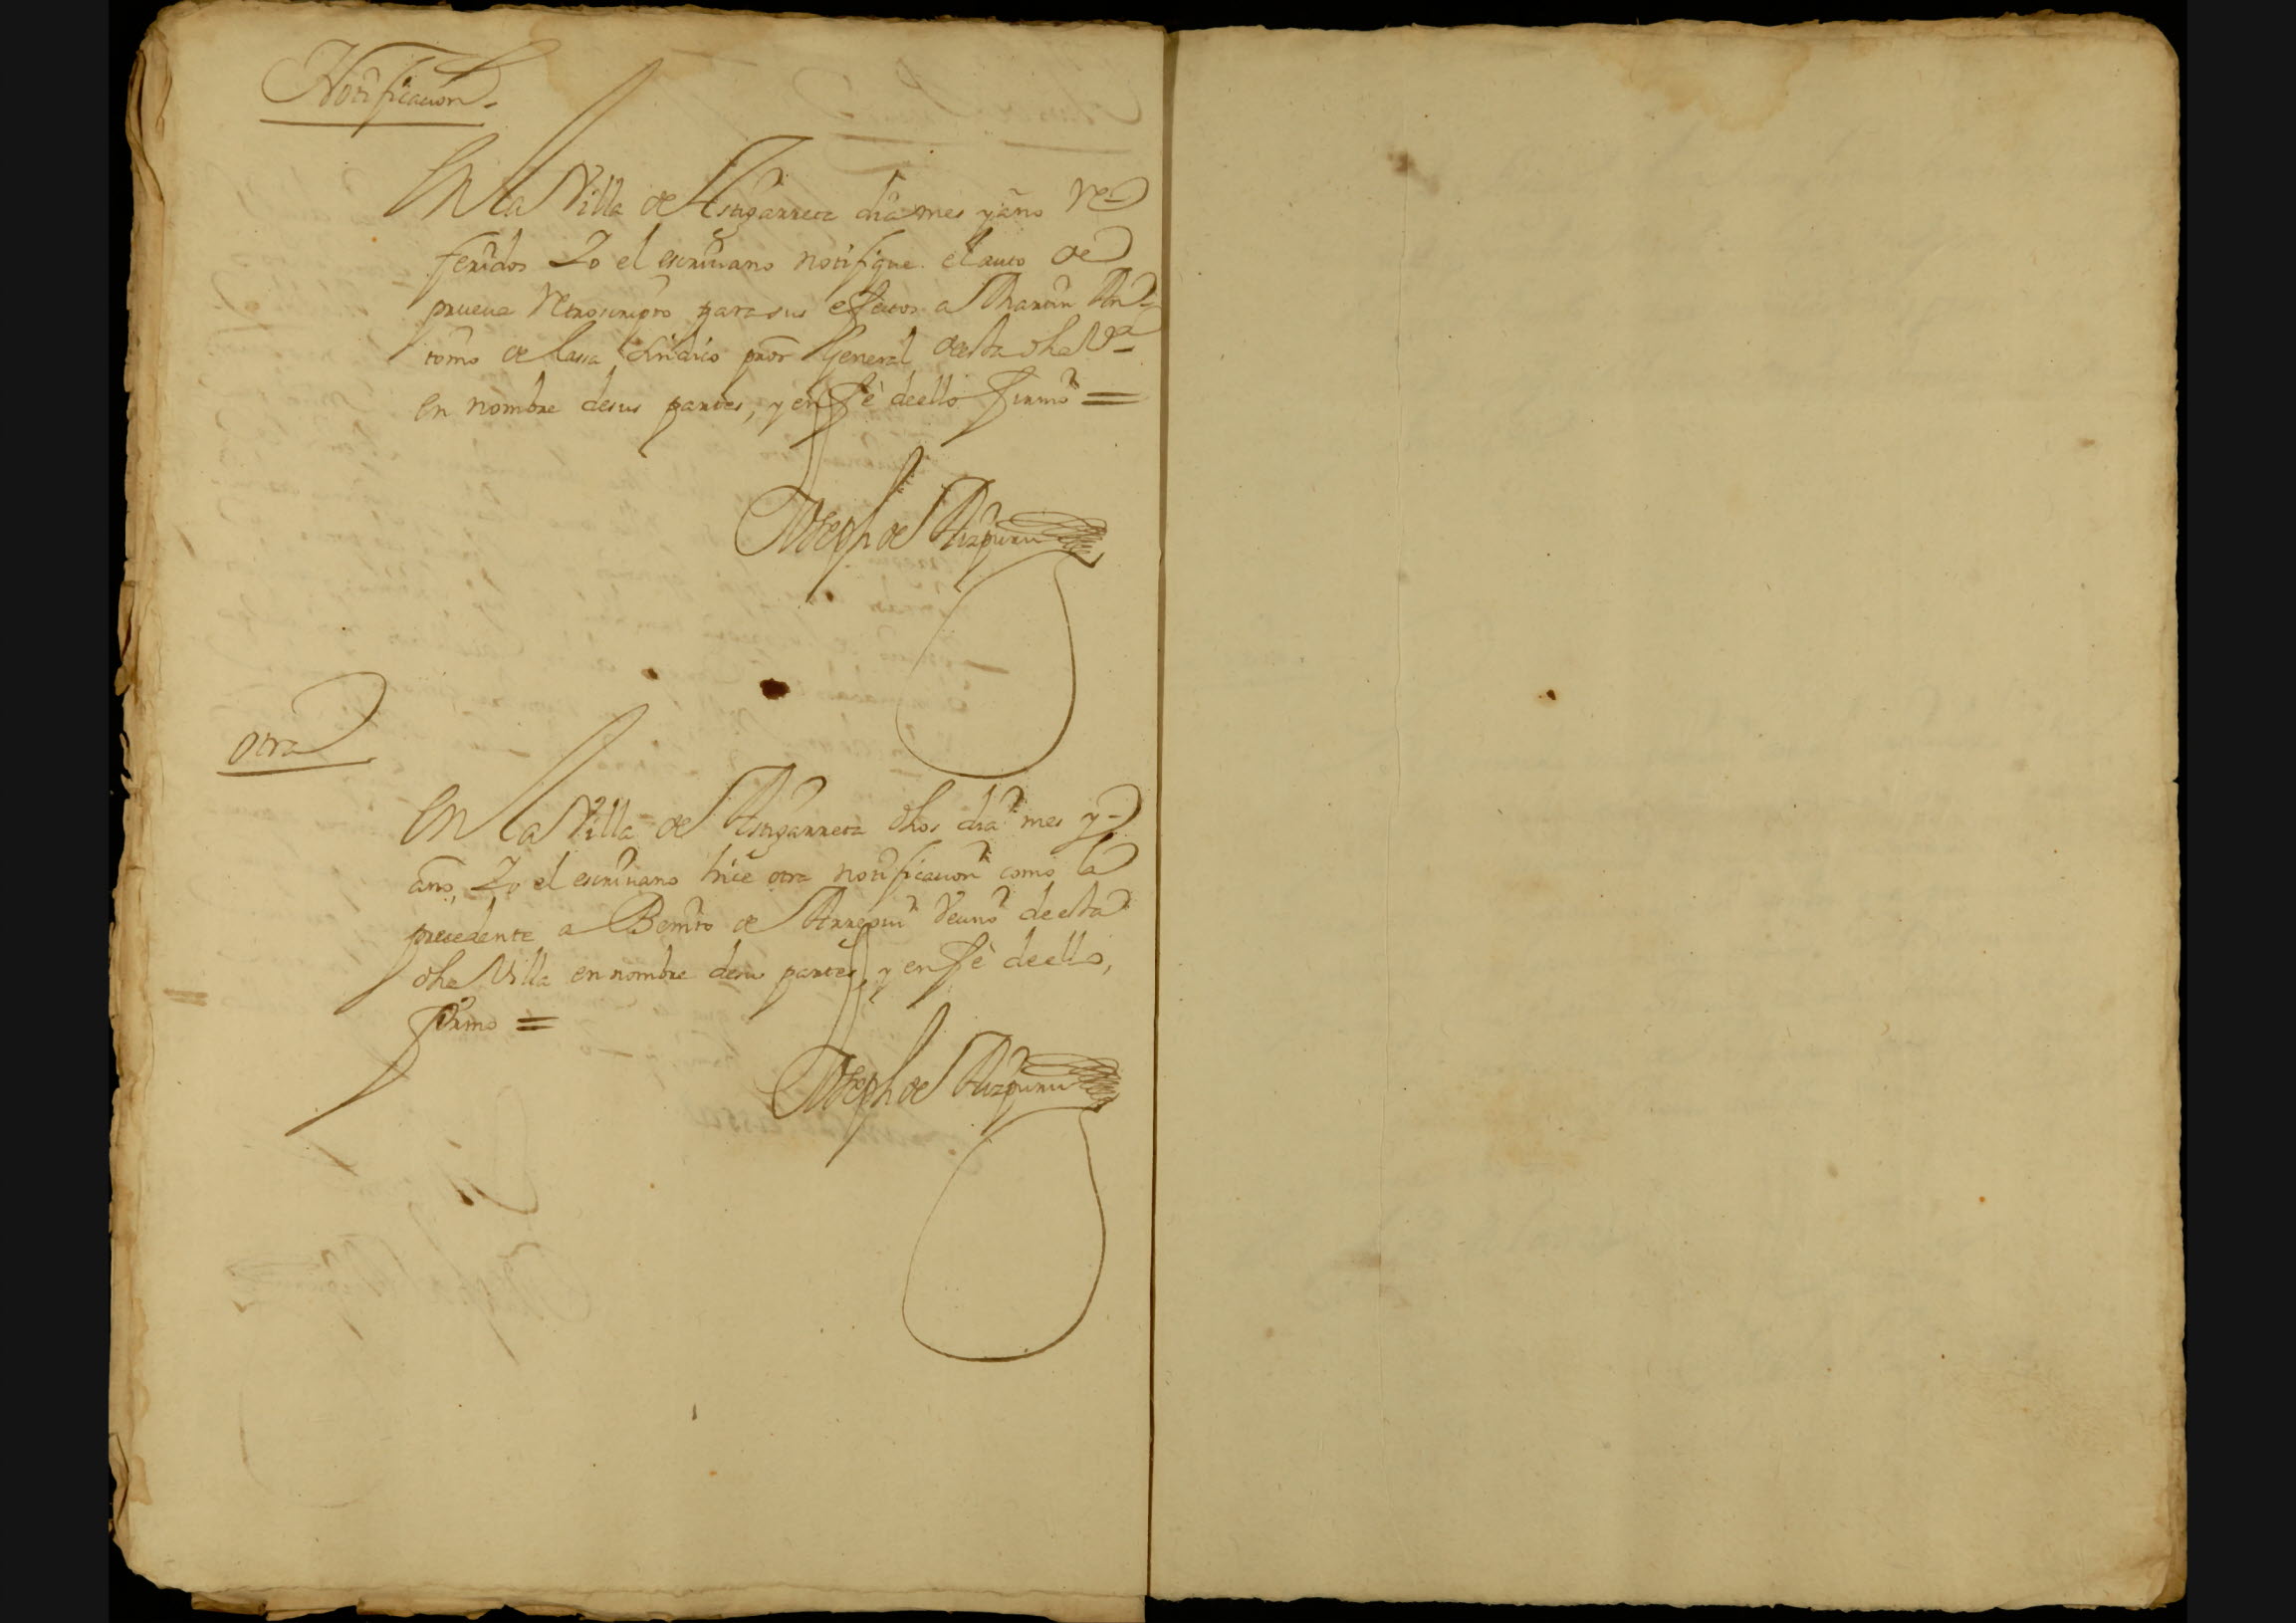 Notificacion
En la Villa de Astigarreta dia mes y año re-
feridos Yo el escriuano notifique el auto de
prueua retroscripto para sus efectos a Martin An-
tonio de Lassa sindico pror General desta dha Va
en nombre de sus partes, y en fè de ello firmo =
Joseph de Aizpuru
otra
En la Villa de Astigarreta dhos dia mes y
año, Yo el escriuano hice otra notificacion como la
precedente a Benito de Arregui Vecino de esta
dha Villa en nombre de su partes, y en fè de ello,
firmo =
Joseph de Aizpuru